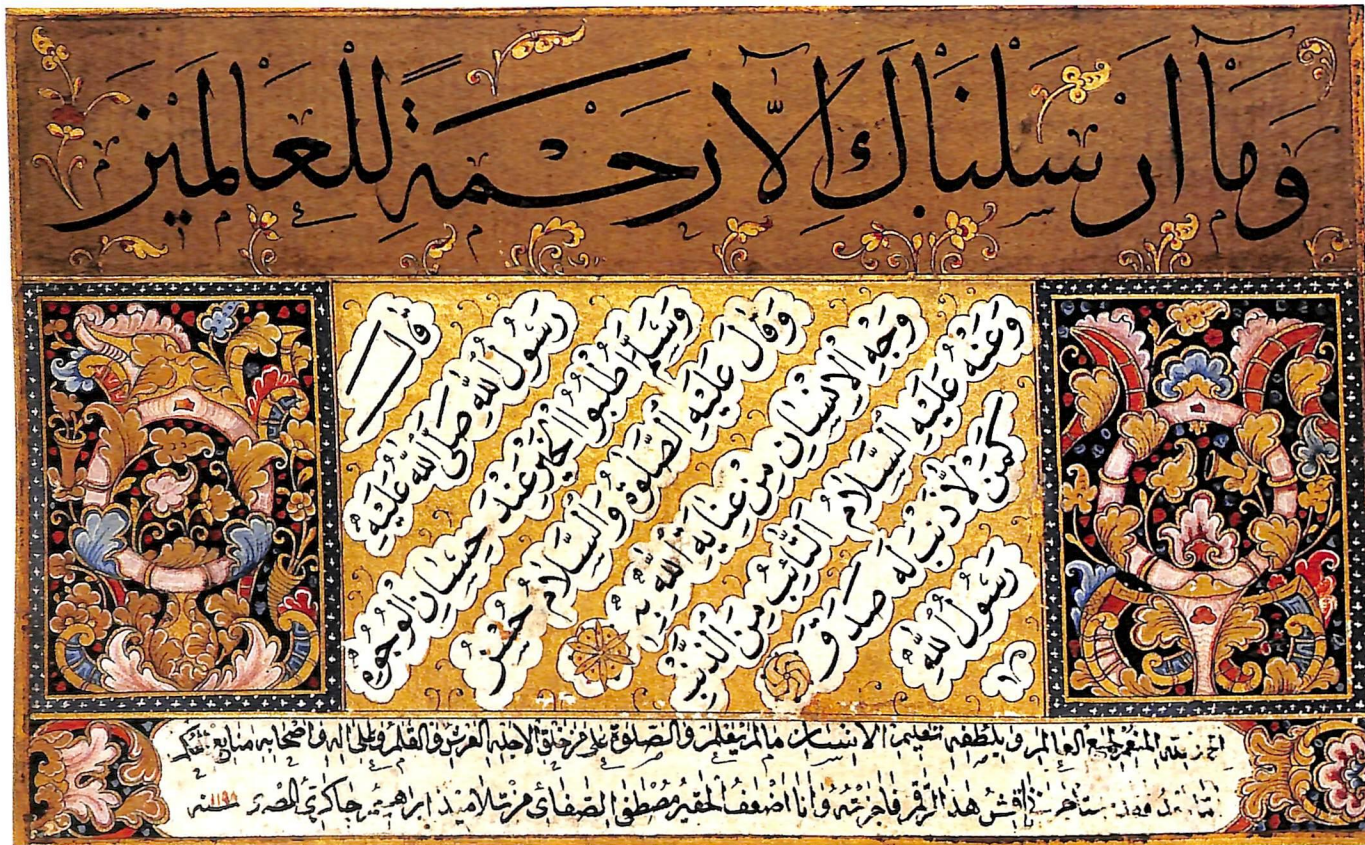 وَمَآ اَرْسَلْنَاكَ اِلَّا رَحْمَةً لِلْعَالَمِيْنَ
قال
رَسُولُ اللهِ صَلَّى اللهُ عَلَيْهِ
وَسَلَّمَ اُطْلُبُوا الْخَيْرَ عِنْدَ حِسَانِ الْوُجُوهِ
وَقَالَ عَلَيْهِ الصَّلٰوةُ وَالسَّلَامُ حُسْنُ
وَجْهِ الْاِنْسَانِ مِنْ عِنَايَةِ اللهِ بِهِ
وَعَنْهُ عَلَيْهِ السَّلَامُ التَّائِبُ مِنَ الذَّنْبِ
كَمَنْ لَا ذَنْبَ لَهُ صَدَقَ
رَسُولُ اللهِ
الحمد لله المنعم لجميع العالم وبلطفه تعليم الانسان مالم يعلم والصلوة على من خلق لاجله العرش والقلم وعلى اله واصحابه منابع
اما بعد فقد هذا الرقم فاجزته وانا اضعف الحقير مصطفى الصفائي من تلاميذ ابراهيم سنه ١١٩٨